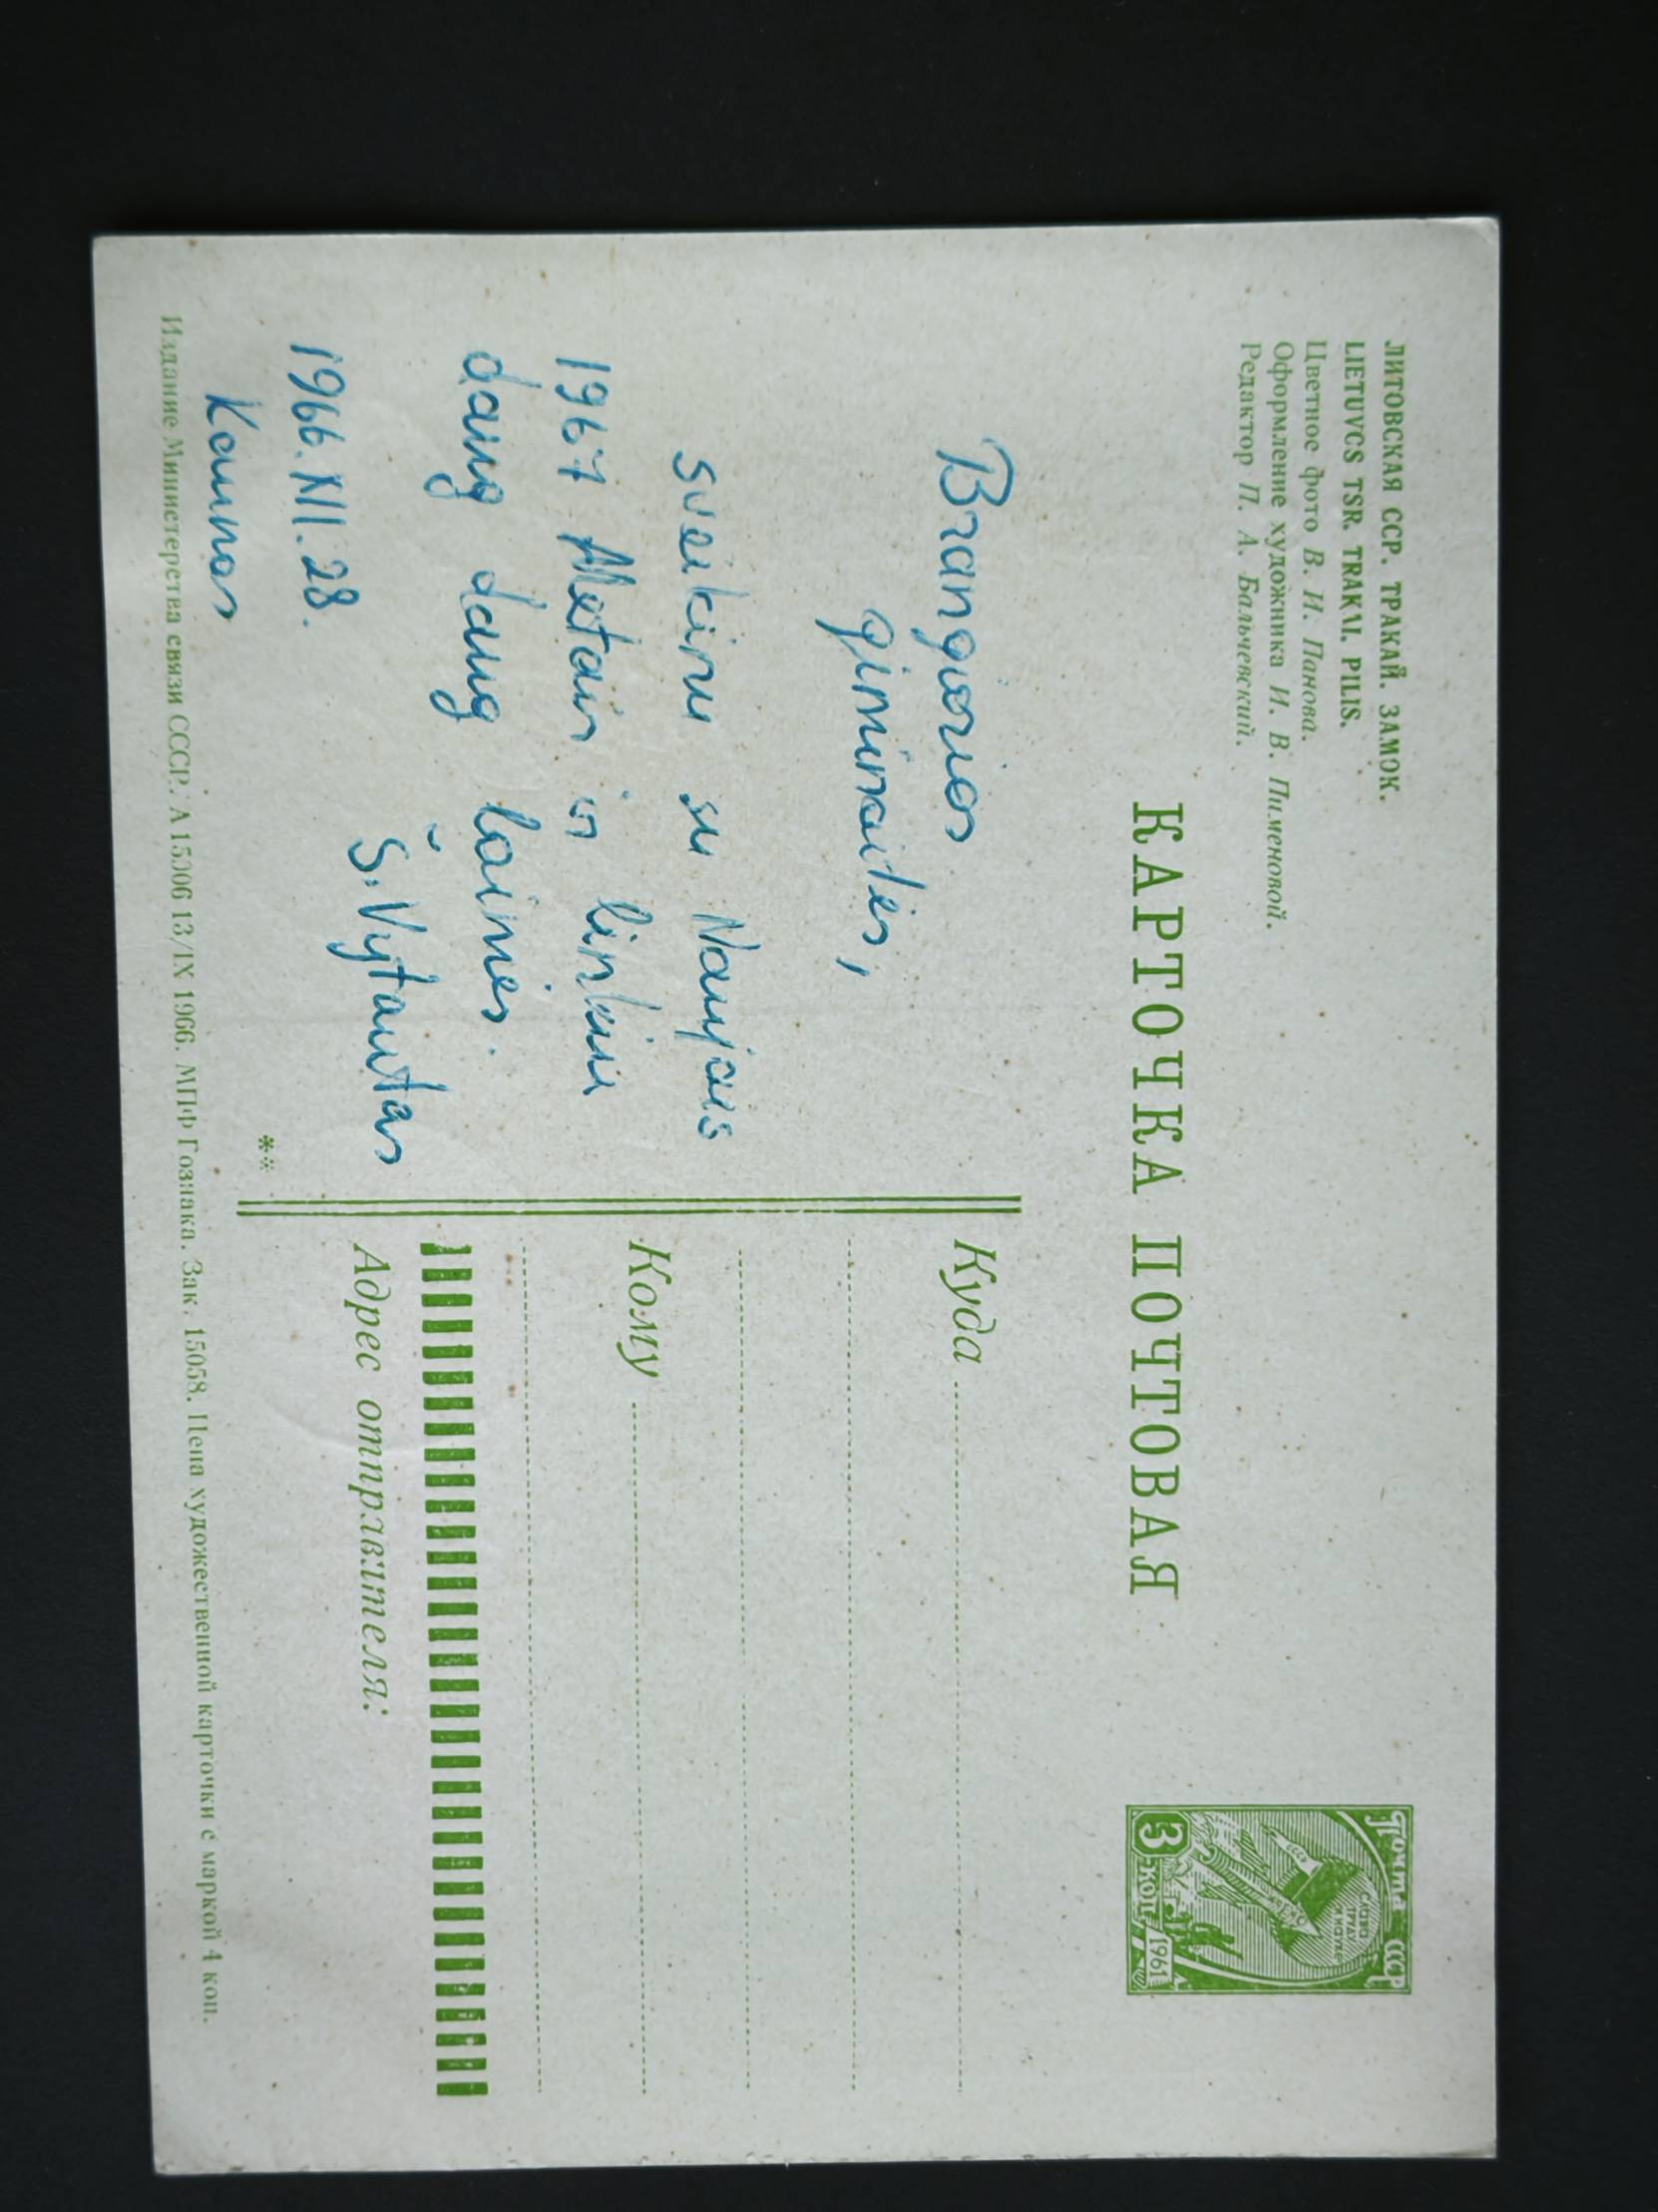 ЛИТОВСКАЯ ССР. ТРАКАЙ. ЗАМОК.
LIETUVOS TSR. TRAKAI. PILIS.
Цветное фото В. И. Панова.
Оформление художника И. В. Пименовой.
Редактор П. А. Бальчевский.
Почта СССР
СЛАВА ТРУДУ И НАУКЕ
СССР
3 КОП.
1961
КАРТОЧКА ПОЧТОВАЯ
Brangiosios
giminaitės,
sveikinu su Naujais
1967 Metais ir linkiu
daug daug laimės.
Š. Vytautas
1966.XII.28.
Kaunas
**
Куда
Кому
Адрес отправителя:
Издание Министерства связи СССР. А 15006 13/IX 1966. МПФ Гознака. Зак. 15058. Цена художественной карточки с маркой 4 коп.